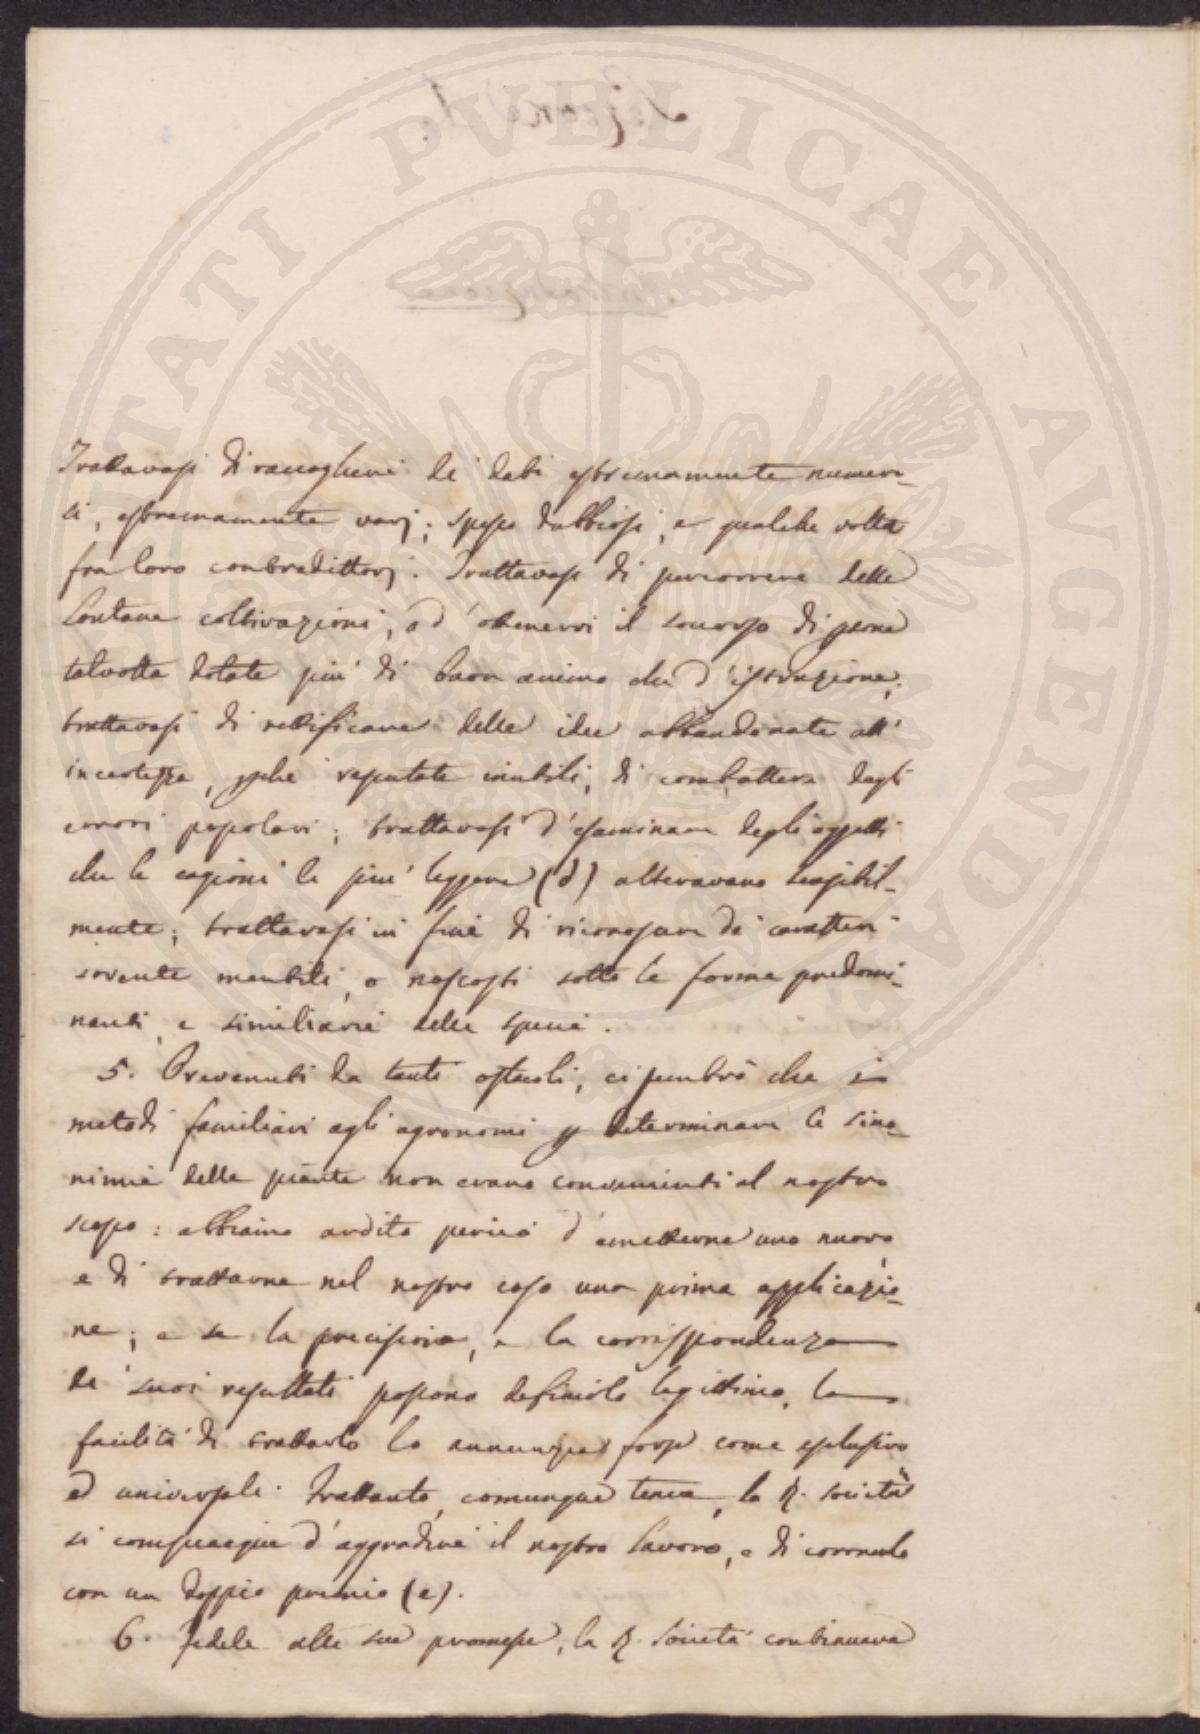 Trattavasi di raccogliere de' dati estremamente numero-
si, estremamente varj; spesso dubbiosi, e qualche volta
fra loro contradittorj. Trattavasi di percorrere delle
lontane coltivazioni, ed ottenervi il soccorso di gente
talvolta dotate più di buon animo che d'istruzione;
trattavasi di rettificare delle idee abbandonate all'
incertezza, perchè reputate inutili, di combattere degli
errori popolari; trattavasi d'esaminare degli oggetti
che le cagioni le più leggere (d) alteravano sensibil-
mente; trattavasi in fine di riconoscere de' caratteri
sovente mentiti, o nascosti sotto le forme predomi-
nanti, e similiarie delle specie.
5. Prevenuti da tanti ostacoli, ci sembrò che i
metodi familiari agli agronomi p determinare la sino-
nimia delle piante non erano convenienti al nostro
scopo: abbiamo ardito perciò d'emetterne uno nuovo
e di trattarne nel nostro caso una prima applicazio-
ne; e se la precisione, e la corrispondenza
de' suoi resultati possono definirlo legittimo, la
facilità di trattarlo lo annunzia forse come esclusivo
ed universale. Trattanto, comunque siasi, la R. Società
si compiacque d'aggradire il nostro lavoro, e di coronarlo
con un doppio premio (e).
6. Fedele alle sue promesse, la R. Società continuava
PUBLICAE AUGENDAE